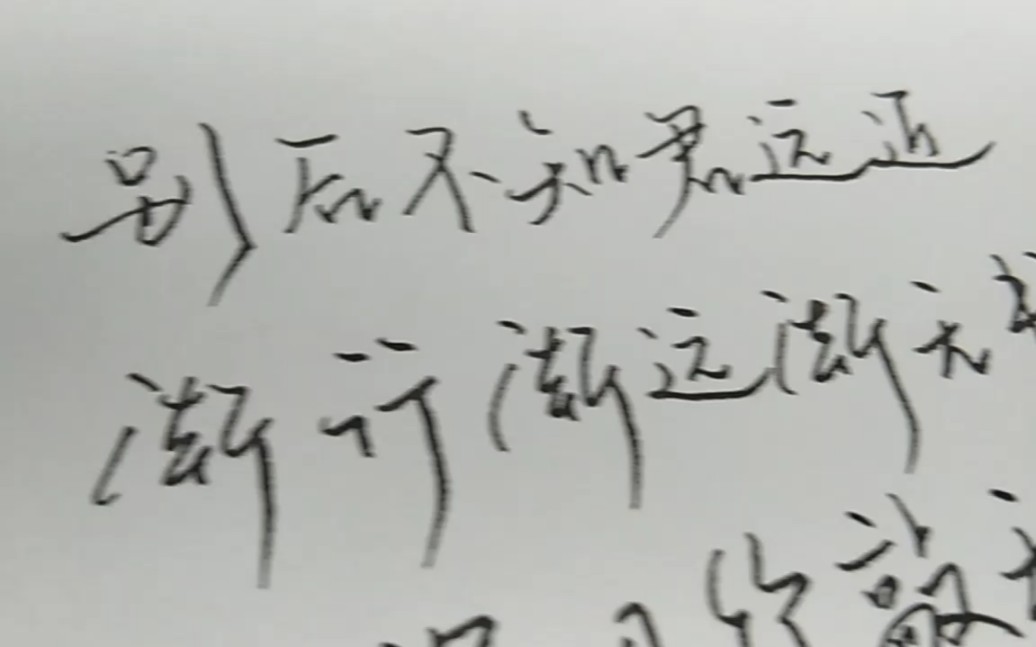 别后不知君远近
渐行渐远渐无
终敲